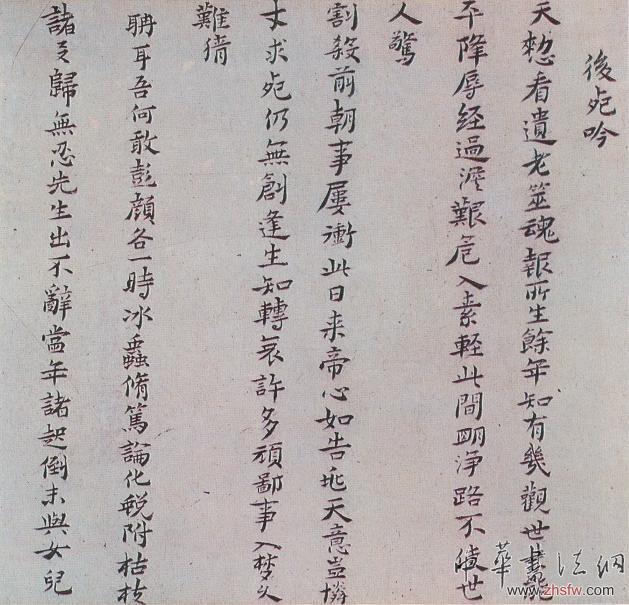 後死吟
天愁看遺老筮魂報所生餘年知有幾觀世
不降辱經過涇艱危入素輕此間明淨路不
人驚
割殺前朝事屢衝此日来帝心如告 天意豈憐
丈求死仍無創逢生知轉哀許多頑鄙事入夢久
難猜
聃耳吾何敢彭顔各一時冰蟲脩篤論化蛻附枯枝
諸 歸無忍先生出不辭當年諸起倒未與女兒
華 法網
www.zhsfw.com